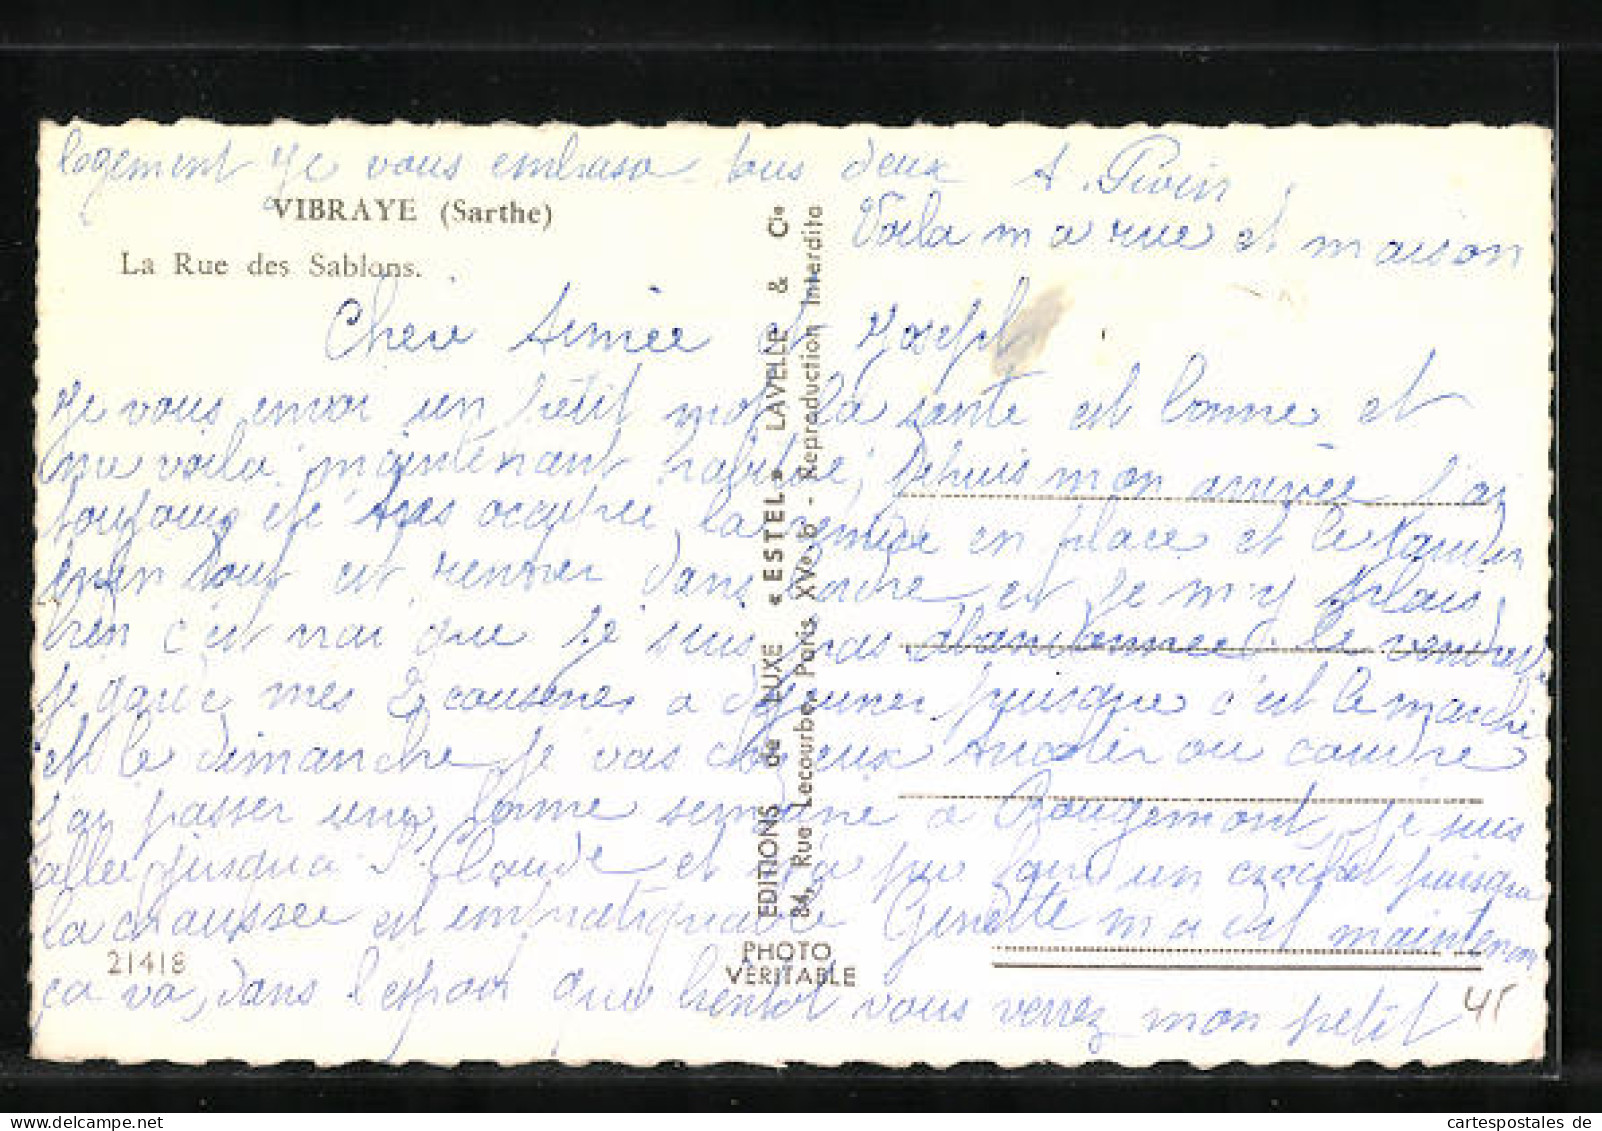 logement Je vous embrasse tous deux A.
VIBRAYE (Sarthe)
La Rue des Sablons.
Voila ma rue et maison
Cheie Aimée et Joseph
Je vous envoi un petit mot la sante est bonne et
me voila maintenant habituee, Depuis mon arrivée j'ai
toujours été tres occupée la remise en place et le Jardin
enfin tout est rentrer dans l'ordre et je m'y plais
bien c'est vrai que je suis pas abandonnee. le vendredi
je garde mes 2 cousines a dejeuner puisque c'est le marché
et le dimanche je vas chez eux
j'ai passer une bonne semaine a Rougemont, je suis
allee jusqua St Claude et n'a pu faire un crochet puisque
la chaussee est impratiquable Ginette
ça va, dans l'espoir que bientot vous verrez mon petit
EDITIONS de LUXE « ESTEL » LAVELLE & Cie
84, Rue Lecourbe, Paris, XVe b - Reproduction Interdite
PHOTO
VÉRITABLE
21418
45
cartespostales.de